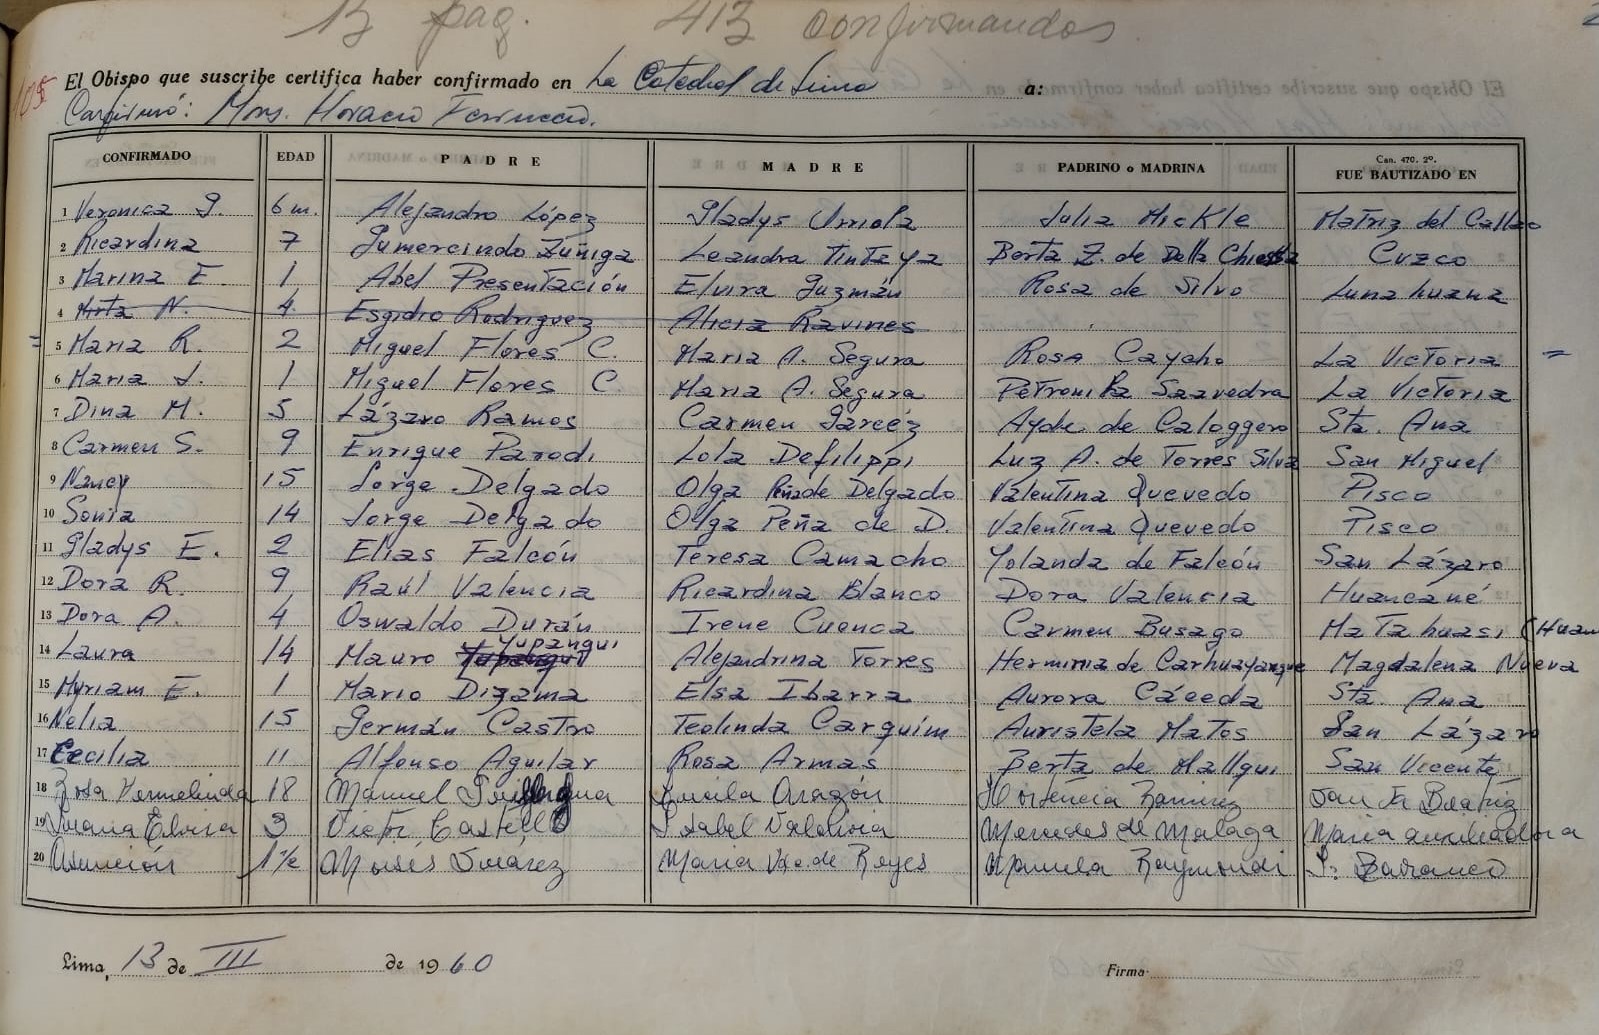 13 pag. 413 confirmandos
105 El Obispo que suscribe certifica haber confirmado en La Catedral de Lima a:
Confirmó: Mons. Horacio Ferruccio.
CONFIRMADO EDAD PADRE MADRE PADRINO o MADRINA Can. 470. 2º. FUE BAUTIZADO EN
1 Veronica J. 6 m. Alejandro López Gladys Urriola Julia Mickle Matriz del Callao
2 Ricardina 7 Gumercindo Zúñiga Leandra Tintaya Berta Z. de Della Chiessa Cuzco
3 Marina E. 1 Abel Presentación Elvira Guzmán Rosa de Silva Lunahuana
4 Mirta N. 4 Esgidio Rodriguez Alicia Ravines
= 5 Maria R. 2 Miguel Flores C. Maria A. Segura Rosa Caycho La Victoria =
6 Maria J. 1 Miguel Flores C. Maria A. Segura Petronila Saavedra La Victoria
7 Dina M. 5 Lázaro Ramos Carmen Garcéz Ayde de Caloggero Sta. Ana
8 Carmen S. 9 Enrique Parodi Lola Defilippi Luz A. de Torres Silva San Miguel
9 Nancy 15 Jorge Delgado Olga Peña de Delgado Valentina Quevedo Pisco
10 Sonia 14 Jorge Delgado Olga Peña de D. Valentina Quevedo Pisco
11 Gladys E. 2 Elias Falcón Teresa Camacho Yolanda de Falcón San Lázaro
12 Dora R. 9 Raúl Valencia Ricardina Blanco Dora Valencia Huancané
13 Dora A. 4 Oswaldo Durán Irene Cuenca Carmen Busago Matahuasi (Huan
14 Laura 14 Mauro Yupanqui Alejandrina Torres Herminia de Carhuayanque Magdalena Nueva
15 Myriam E. 1 Mario Dizama Elsa Ibarra Aurora Cáceda Sta. Ana
16 Nelia 15 Germán Castro Teolinda Carquím Auristela Matos San Lázaro
17 Cecilia 11 Alfonso Aguilar Rosa Armas Berta de Mallqui San Vicente
18 Rosa Hermelinda 18 Manuel Lucila Aragón Hortencia Ramirez San Fr Beatriz
19 Eloisa 3 Victor Castillo Isabel Valdivia Mercedes de Malaga Maria auxiliadora
20 Asunción 1½ Moisés Suárez Maria Vda. de Reyes Manuela Raymondi Barranco
Lima, 13 de III de 1960
Firma